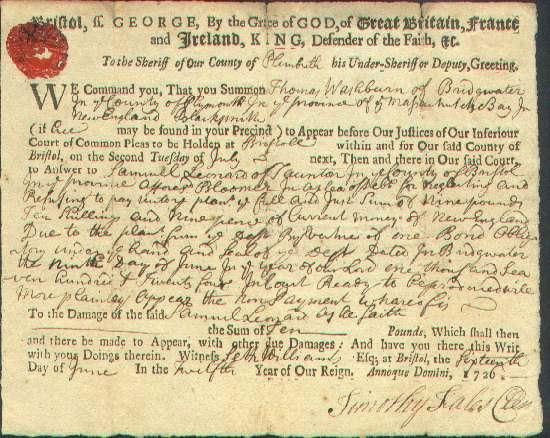 Bristol, ss. GEORGE, By the Grace of GOD, of Great Britain, France
and Ireland, KING, Defender of the Faith, &c.
To the Sheriff of Our County of Plimouth his Under-Sheriff or Deputy, Greeting.
WE Command you, That you Summon Thomas Washburn of Bridgwater
In ye County of Plymouth In ye province of ye Massachutets Bay In
New England Blacksmith
(if He may be found in your Precinct) to Appear before Our Justices of Our Inferiour
Court of Common Pleas to be Holden at Bristoll within and for Our said County of
Bristol, on the Second Tuesday of July next, Then and there in Our said Court,
to Answer to Samuel Leonard of Taunton In ye County of Bristol
In ye province Bloomer In a plea of Debt for neglecting and
Refusing to pay unto ye plant ye full and Just Sum of Nine pounds
Ten Shillings and Nine pence of Current money of New England
Due to the plant from ye Deft By vertue of one Bond
under ye hand and Seal of ye Deft Dated In Bridgwater
the Ninth Day of June In ye year of our Lord one thousand Sea
ven hundred & Twenty four In Court Ready to be produced will
More plainly Appear the Non payment whareof is
To the Damage of the said Samuel Leonard as he saith
the Sum of Ten Pounds, Which shall then
and there be made to Appear, with other due Damages: And have you there this Writ
with your Doings therein. Witness Seth Williams Esq; at Bristol, the Sixteenth
Day of June In the twelfth Year of Our Reign. Annoque Domini, 1726.
Timothy Fales Cler